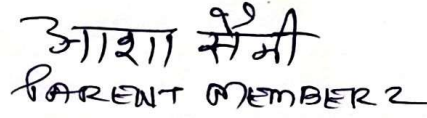 आशा सैनी
PARENT MEMBER 2